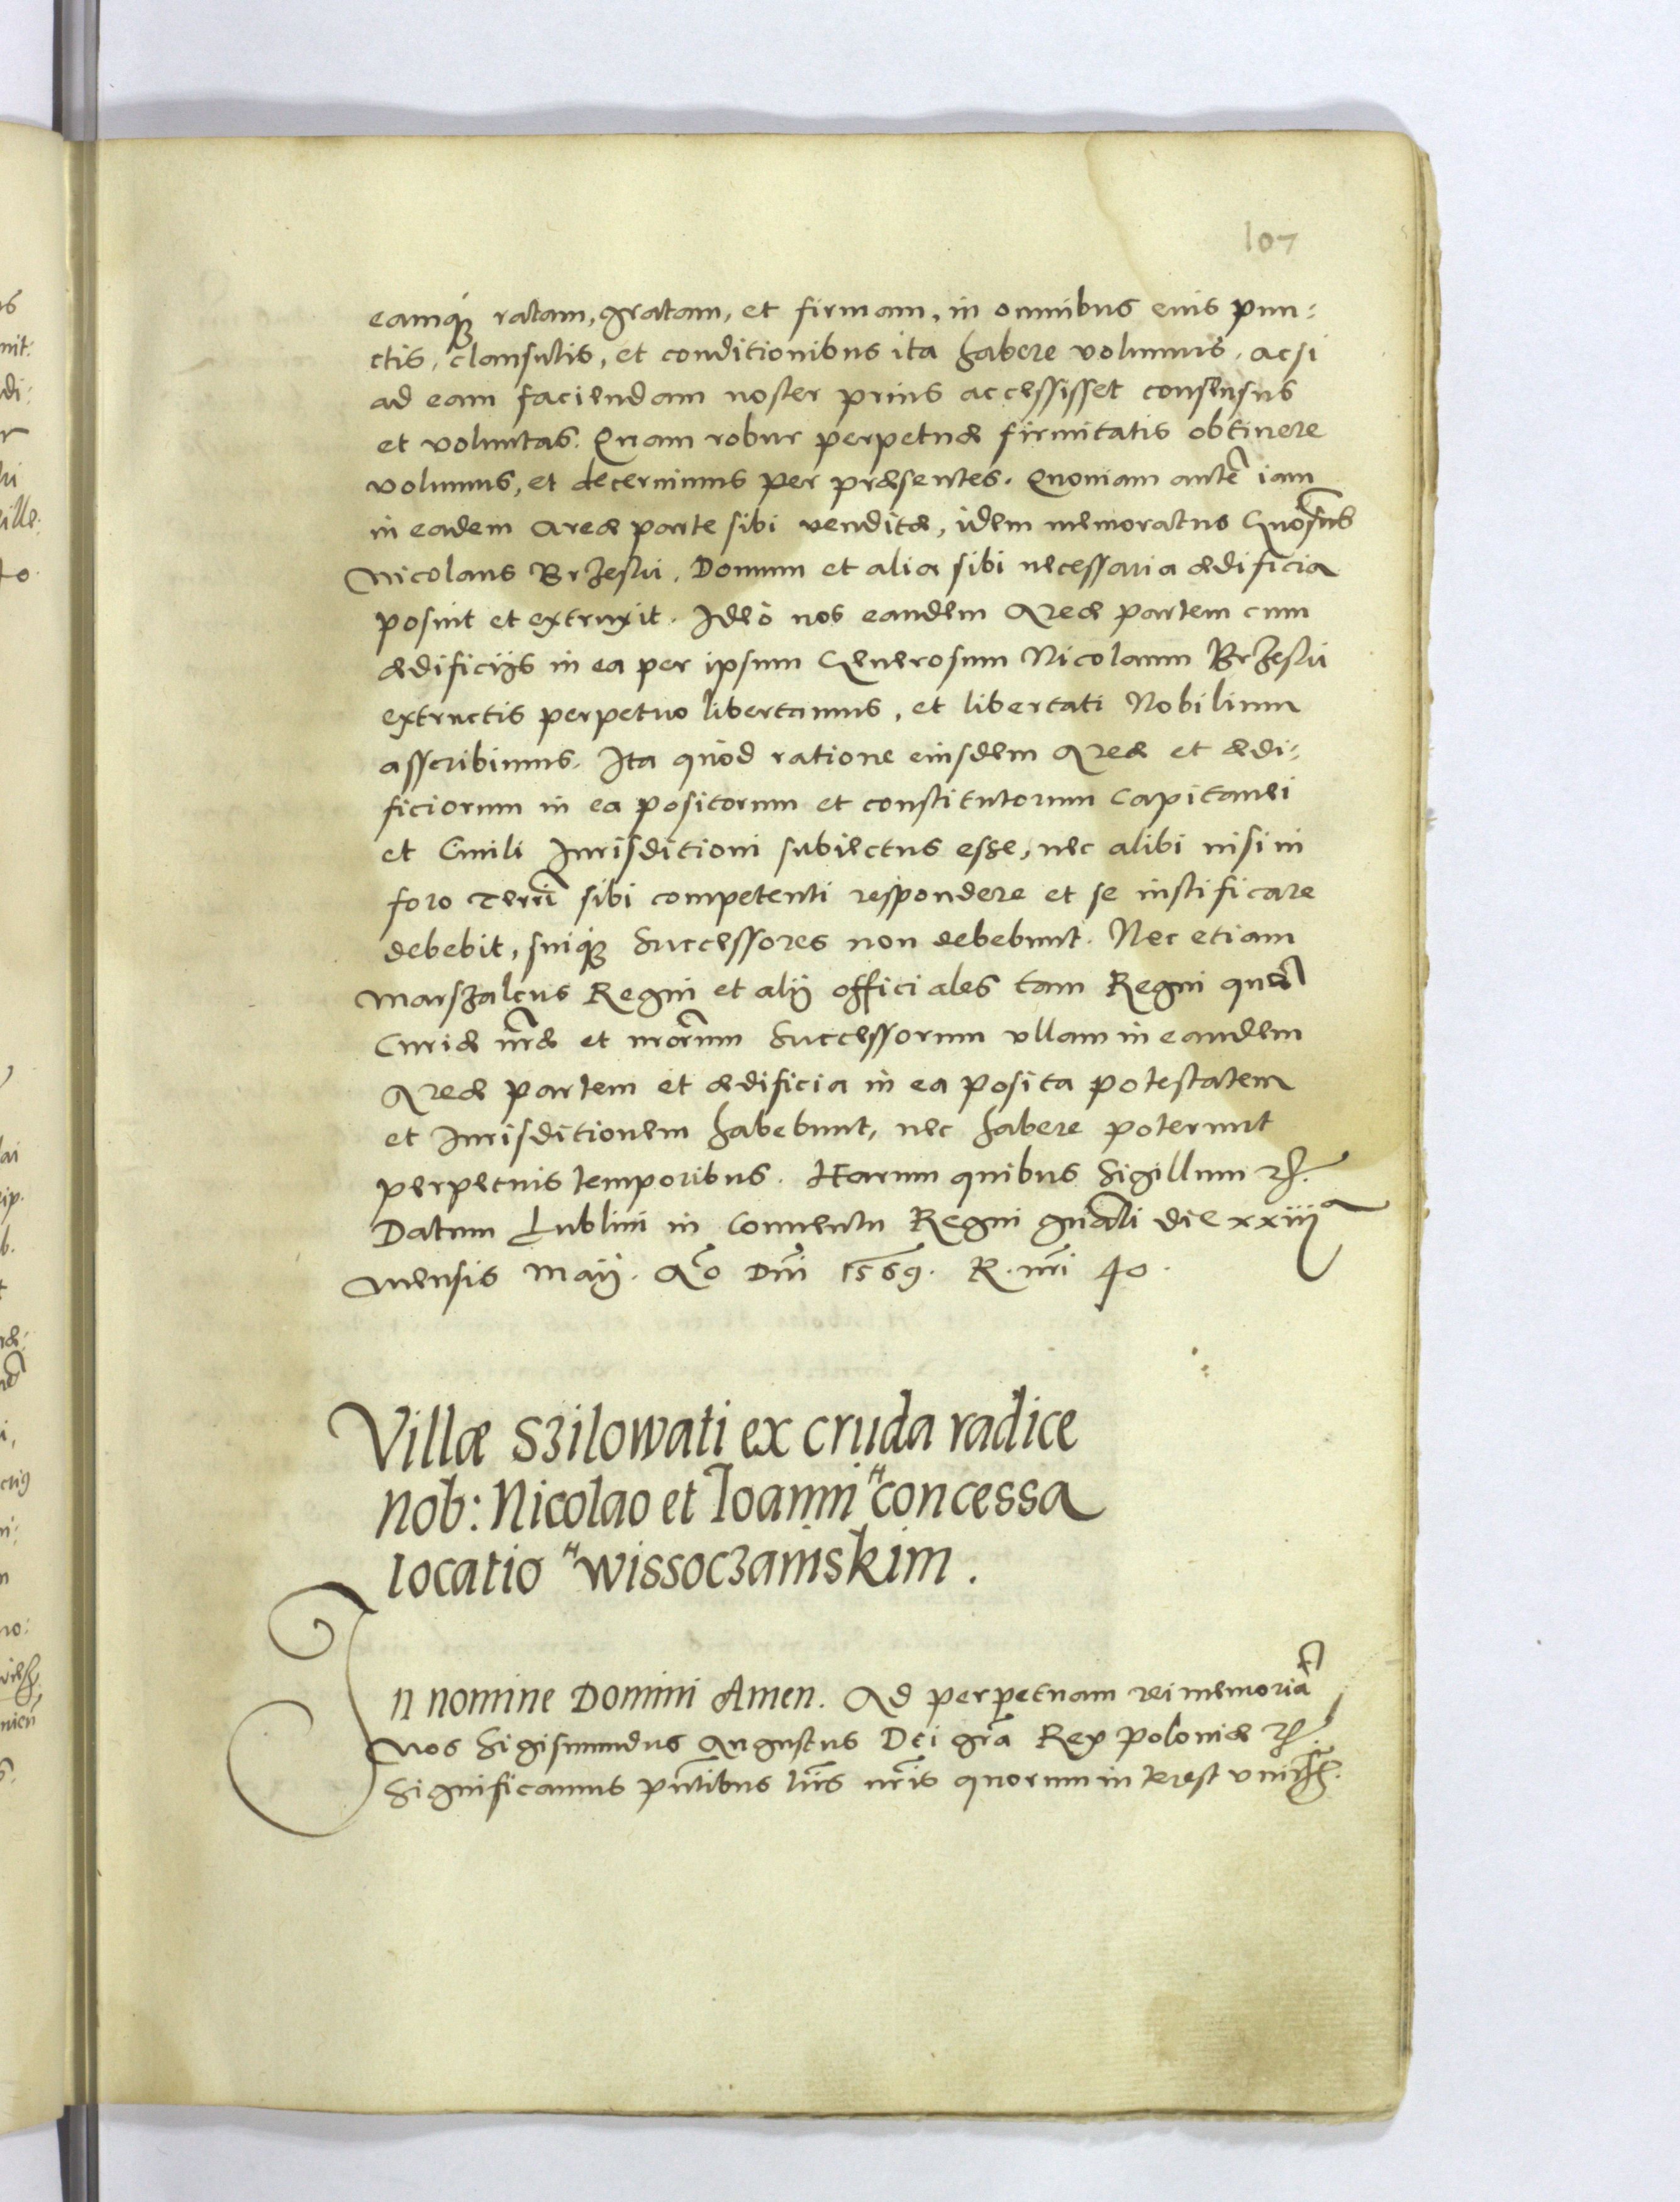 107
eamq́ꝫ ratam, gratam, et firmam, in omnibus euis pun:
ctis, clausulis, et conditionibus ita habere volumus, acsi
ad eam faciendam noster prius accessisset consensus
et voluntas. Quam robur perpetuæ firmitatis obtinere
volumus, et decernimus per præsentes. Quoniam autē iam
in eadem Areæ parte sibi venditæ, idem memoratus Gnōsus
Nicolaus Brzeski, Domum et alia sibi necessaria ædificia
posuit et extruxit. Ideò nos eandem Areæ partem cum
ædificijs in ea per ipsum Generosum Nicolaum Brzeski
extructis perpetuo libertamus, et libertati Nobilium
asscribimus. Ita quòd ratione eiusdem Areæ et ædi:
ficiorum in ea positorum et constitutorum Capitanei
et Ciuili Jurisditioni subiectus esse, nec alibi nisi in
foro Terri̅ sibi competenti respondere et se iustificare
debebit, suiq́ꝫ Successores non debebunt. Nec etiam
Marszalcus Regni et alij officiales tam Regni quā
Curiæ nr̅æ et nr̅orum Successorum vllam in eandem
Areæ partem et ædificia in ea posita potestatem
et Jurisditionem habebunt, nec habere poterunt
perpetuis temporibus. Harum quibus Sigillum ꝛc̃.
Datum Lublini in Conuentu Regni gnāli die xxiiij
mensis Maij. Aō Dn̄i 1569. R. nr̄i 40.
Villæ Szilowati ex cruda radice
Nob: Nicolao et Ioanni " concessa
locatio " Wissoczaniskim.
In nomine Domini Amen. Ad perpetuam rei memoriā
Nos Sigismundus Augustus Dei grā Rex Poloniæ ꝛc̃.
Significamus pn̄tibus lr̄is nr̄is quorum interest vni꭛̃.